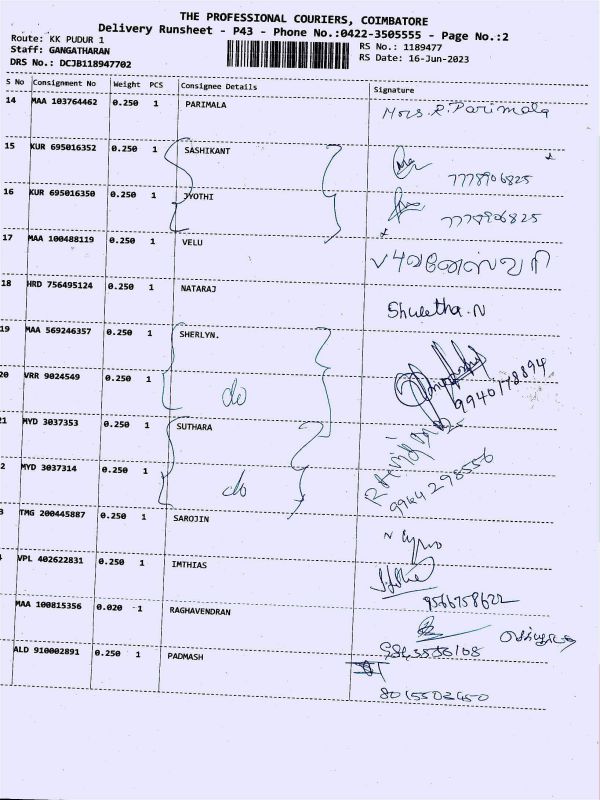 THE PROFESSIONAL COURIERS, COIMBATORE
Delivery Runsheet - P43 - Phone No.:0422-3505555 - Page No.:2
Route: KK PUDUR 1
RS No.: 1189477
Staff: GANGATHARAN
RS Date: 16-Jun-2023
DRS No.: DCJB118947702
S No Consignment No Weight PCS Consignee Details Signature
14 MAA 103764462 0.250 1 PARIMALA Mrs. R. Parimala
15 KUR 695016352 0.250 1 SASHIKANT 7778906825
16 KUR 695016350 0.250 1 JYOTHI 7778906825
17 MAA 100488119 0.250 1 VELU
18 HRD 756495124 0.250 1 NATARAJ Shwetha.N
19 MAA 569246357 0.250 1 SHERLYN.
20 VRR 9024549 0.250 1 do 9940178894
21 MYD 3037353 0.250 1 SUTHARA
2 MYD 3037314 0.250 1 do 9944298556
3 TMG 200445887 0.250 1 SAROJIN
VPL 402622831 0.250 1 IMTHIAS 9566758622
MAA 100815356 0.020 1 RAGHAVENDRAN
ALD 910002891 0.250 1 PADMASH
8015502450